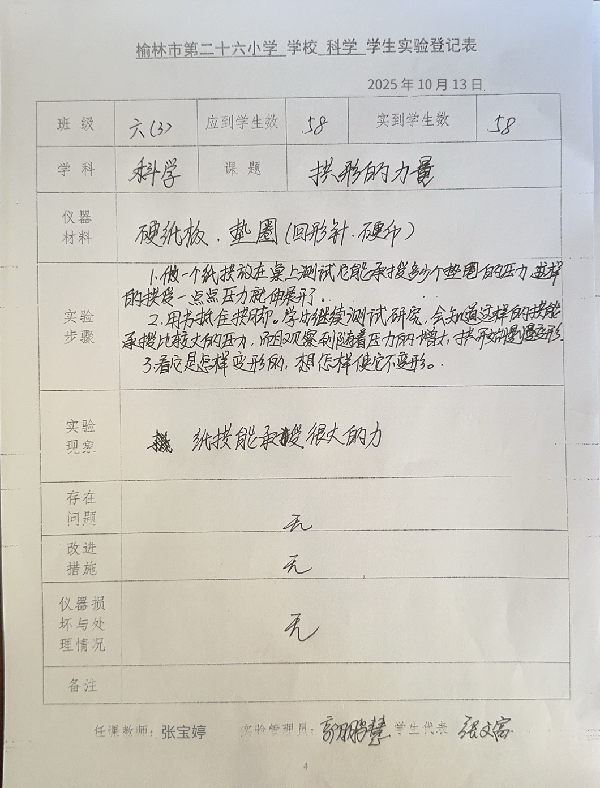 榆林市第二十六小学 学校 科学 学生实验登记表
2025年10月13日
班级 六(3) 应到学生数 58 实到学生数 58
学科 科学 课题 拱形的力量
仪器材料 硬纸板、垫圈(回形针、硬币)
实验步骤
1.做一个纸拱放在桌上测试它能承受多少个垫圈的压力,这样
的拱受一点点压力就伸展开了。
2.用书抵住拱脚。学生继续测试研究,会知道这样的拱能
承受比较大的压力,而且观察到随着压力的增大,拱形慢慢变形
3.看它是怎样变形的,想怎样使它不变形。
实验现察 纸拱能承受很大的力
存在问题 无
改进措施 无
仪器损坏与处理情况 无
备注
任课教师:张宝婷 实验管理员: 学生代表 张文富
4